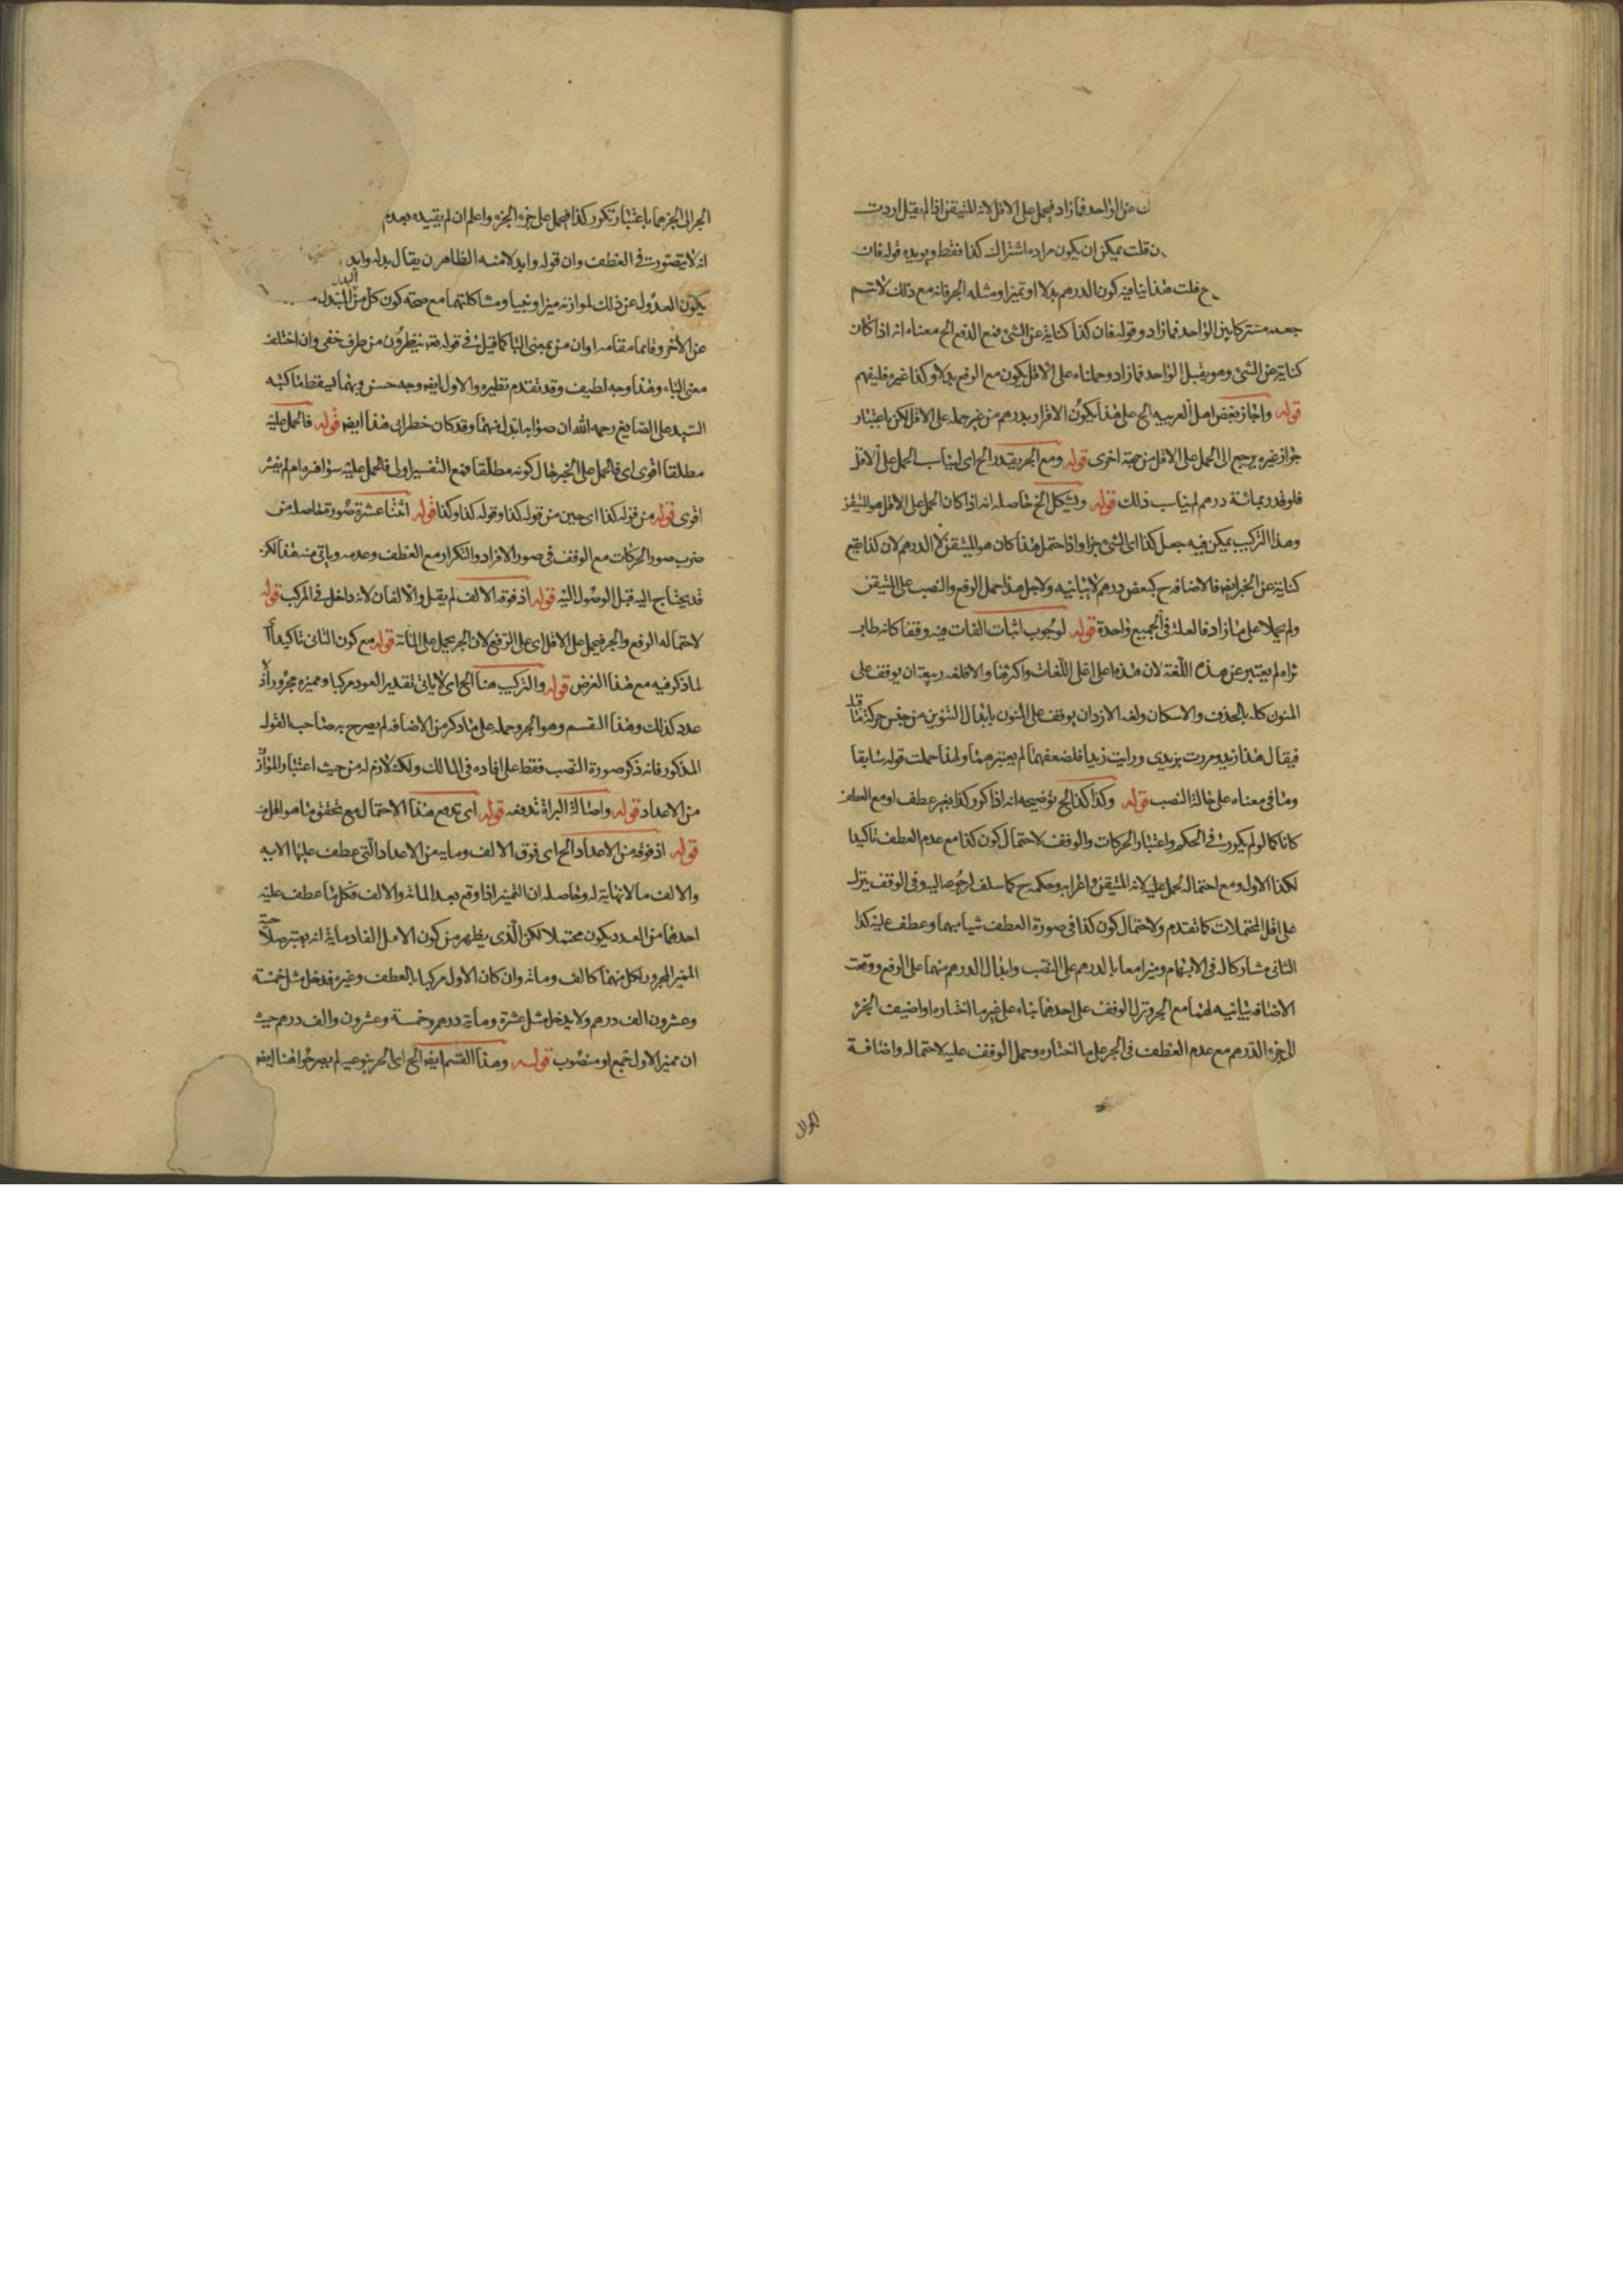 عن الواحد فما زاد فيحمل على الاقل لانه المتيقن اذا لم يقل اردت
قلت يمكن ان يكون مراده اشتراك كذا فقط ويويده قوله فان
ح قلت هذا ينافيه كون الدرهم بدلا او تميزا ومثله الجر فانه مع ذلك لا تتم
جعله مشتركا بين الواحد فما زاد وقوله فان كذا كناية عن الشئ فمع الرفع الخ معناه انه اذا كان
كناية عن الشئ وهو يقبل الواحد فما زاد وحملناه على الاقل يكون مع الرفع بدلا وكذا غيره فليفهم
قوله واجاز بعض اهل العربيه الخ على هذا يكون الاقرار بدرهم من غير حمله على الاقل لكن باعتبار
جواز غيره يرجع الى الحمل على الاقل من جهة اخرى قوله ومع الجر يقدر الخ اى ليناسب الحمل على الاقل
فلو قدر بمائة درهم لم يناسب ذلك قوله ويشكل الخ حاصله انه اذا كان الحمل على الاقل هو المتيقن
وهذا التركيب يمكن فيه جعل كذا اى الشئ جزا واذا احتمل هذا كان هو المتيقن لا الدرهم لان كذا يقع
كناية عن الجزايض فالاضافه ح كبعض درهم لا بيانيه ولاجل هذا حمل الرفع والنصب على المتيقن
ولم يحملا على ما زاد فالعلة فى الجميع واحدة قوله لوجوب اثبات الفات فيه وقفا كانه
تراه لم يعتبر عن هذه اللغة لان هذه اعلى اللغات واكثرها والا فلغه ربيعة ان يوقف على
المنون كله بالحذف والاسكان ولغه الازد ان يوقف على المنون بابدال التنوين من جنس حركة ما قبله
فيقال هذا زيدو مررت بزيدى ورايت زيدا فلضعفهما لم يعتبرهما ولهذا حملت قوله سابقا
وما فى معناه على حالة النصب قوله وكذا كذا الخ توضيحه انه اذا كرر كذا بغير عطف او مع العطف
كانا كما لو لم يكرر فى الحكم واعتبار الحركات والوقف لاحتمال كون كذا مع عدم العطف تاكيدا
لكذا الاول ومع احتماله يحمل عليه لانه المتيقن واعرابه وحكمه ح كما سلف لرجوعه اليه وفى الوقف ينزل
على اقل المحتملات كما تقدم ولاحتمال كون كذا فى صورة العطف شيا مبهما وعطف عليه كذا
الثانى مشاركا له فى الابهام وميزا معا بالدرهم على النصب وابدال الدرهم منهما على الرفع ووقعت
الاضافه بيانيه لهما مع الجر ونزل الوقف على احدهما بناء على غير ما اختاره او اضيف الجزء
الى جزء الدرهم مع عدم العطف فى الجر على ما اختاره وحمل الوقف عليه لاحتماله واضافة
الجزء الى الجزء هما باعتبار تكرر كذا فيحمل على جزء الجزء واعلم ان لم يقيده بعدم
انه لا يتصور فى العطف وان قوله وابدلا منه الظاهر ان يقال بدله وابدل
يكون العدول عن ذلك لموازنه ميزا ونبيا ومشاكلتهما مع صحة كون كل من المبدل
عن الاخر وقائما مقامه او ان من بمعنى البا كما قيل فى قوله تعه ينظرون من طرف خفى وان اختلف
معنى الباء وهذا وجه لطيف وقد تقدم نظيره والاول ايض وجه حسن وبهما يسقط ما كتبه
السيد على الصايغ رحمه الله ان صوابه ابدل منهما وقد كان خطر لى هذا ايض قوله فالحمل عليه
مطلقا اقوى اى فالحمل على الجر حال كونه مطلقا فمع التفسير اولى فالحمل عليه سواء فسره ام لم يفسر
اقوى قوله من قوله كذا اى حين من قوله كذا وقوله كذا وكذا قوله اثنتا عشرة صورة حاصلة من
ضرب صور الحركات مع الوقف فى صور الافراد والتكرار مع العطف وعدمه وياتى منه هذا لكن
قد يحتاج اليه قبل الوصول اليه قوله اذ فوقه الالف لم يقل والالفان لانه داخل فى المركب قوله
لاحتماله الرفع والجر فيحمل على الاقل اى على الرفع لان الجر يحمل على المائة قوله مع كون الثانى تاكيدا
لما ذكر فيه مع هذا الغرض قوله والتركيب هنا الخ اى لا ياتى تقدير العدد مركبا ومميزه مجرورا اذ لا
عدد كذلك وهذا القسم وهو الجر وحمله على ما ذكر من الاضافه لم يصرح به صاحب القول
المذكور فانه ذكر صورة النصب فقط على افاده فى المسالك ولكنه لازم له من حيث اعتبار الموازن
من الاعداد قوله واصالة البراة تدفعه قوله اى تدفع هذا الاحتمال مع تحقق ما هو اقل منه
قوله اذ فوقه من الاعداد الخ اى فوق الالف ومايه من الاعداد التى عطف عليها الابه
والالف ما لا نهاية له وحاصله ان التميز اذا وقع بعد المائه والالف فكل ما عطف عليه
احدهما من العدد يكون محتملا لكن الذى يظهر من كون الاصل الفا دماية انه يعتبر صلاحية
المميز المجرور لكل منهما كالف ومائه وان كان الاول مركبا بالعطف وغيره فدخل مثل خمسة
وعشرون الف درهم ولا يدخل مثل عشرة ومائة درهم وخمسة وعشرون والف درهم حيث
ان مميز الاول جمع او منصوب قوله وهذا القسم ايض الخ اى الجر بنوعيه لم يصرحوا هنا ايض